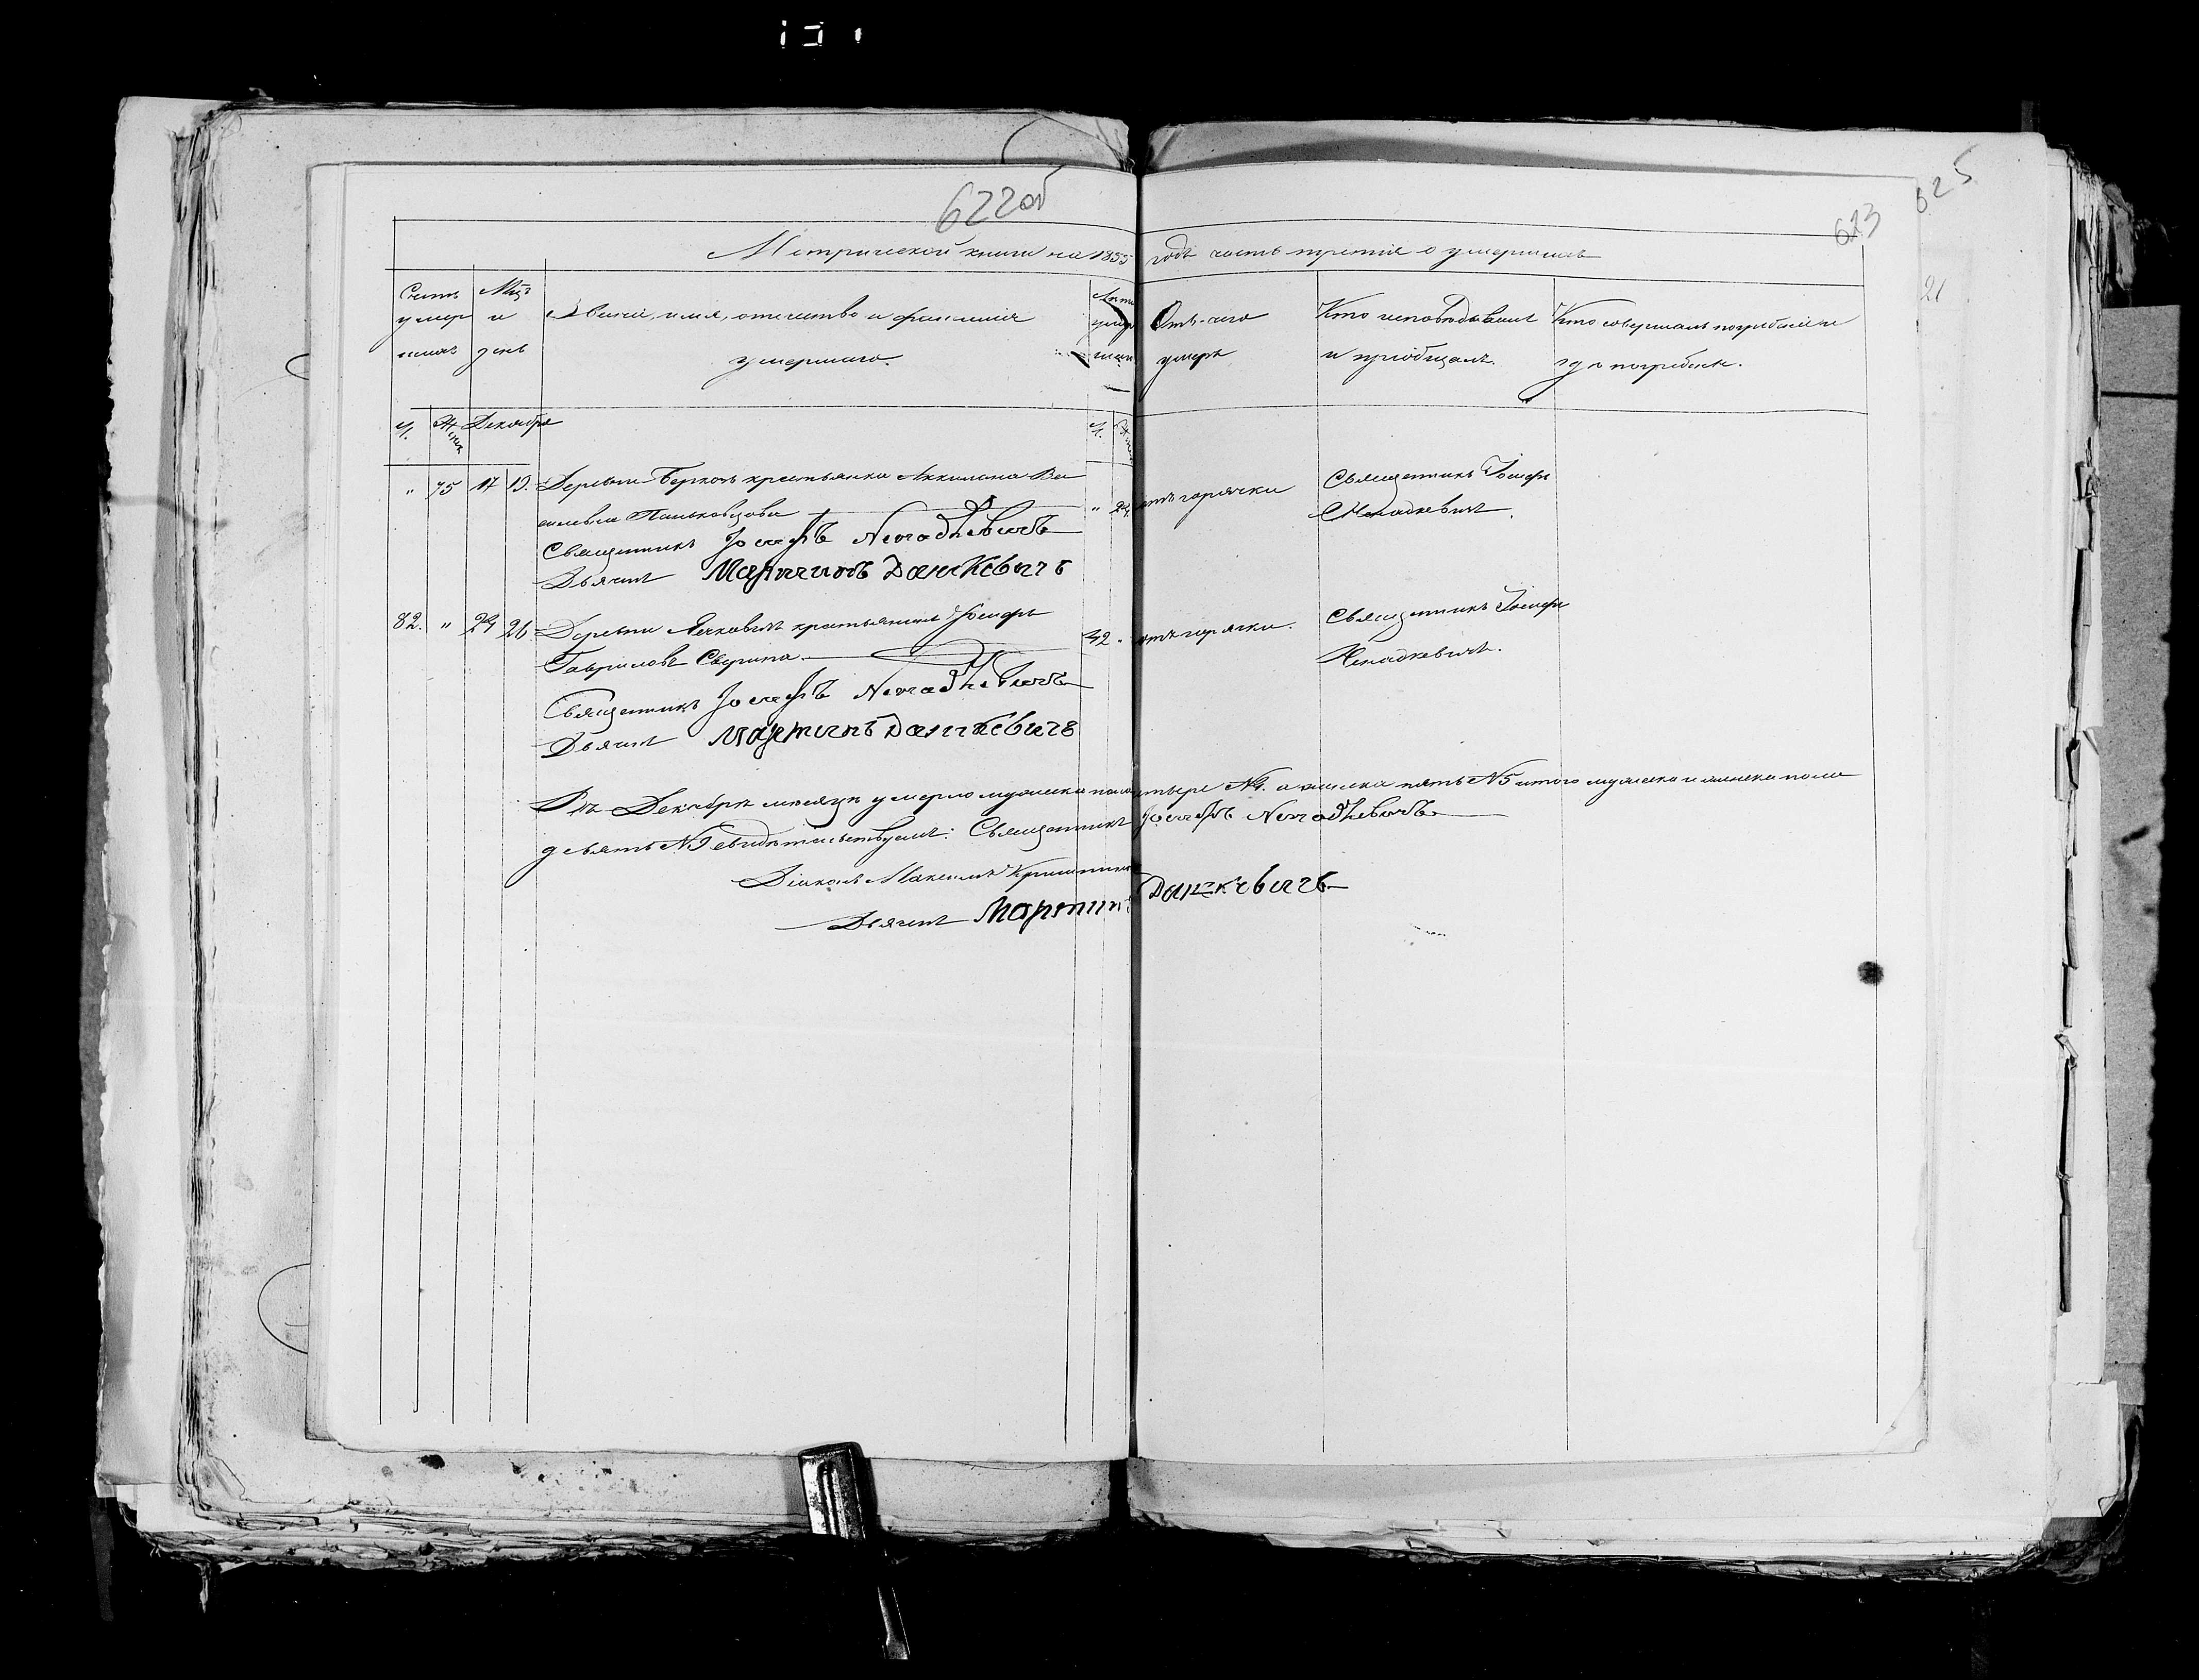 622об
623
625
Метрической книги на 1855 годъ часть третія о умершихъ
21
Счетъ умер шихъ
Мцъ и день
Званіе, имя, отчество и фамилія умершаго.
Лѣта умер шаго
Отъ чего умеръ
Кто исповѣдывалъ и пріобщалъ.
Кто совершалъ погребеніе и гдѣ погребенъ.
М. Женск Декабря М.
" 75 17 19. Деревни крестьянка Ва
сильева " 24. отъ горячки Священникъ Іосифъ
Священникъ Іосифъ Ненадкевичъ Ненадкевичъ.
Дьячекъ Мартинъ Данкевичъ
82. " 24 26. Деревни крестьянинъ Іосифъ 42. " отъ горячки. Священникъ Іосифъ
Гавриловъ Ненадкевичъ.
Священникъ Іосифъ Ненадкевичъ
Дьячекъ Мартинъ Данкевичъ
Въ Декабрѣ мѣсяцѣ умерло мужеска пола четыре №4. а женска пять №5 итого мужеска и женска пола
девять №9 свидѣтельствуемъ: Священникъ Іосифъ Ненадкевичъ
Діаконъ Максимъ
Дьячекъ Мартинъ Данкевичъ